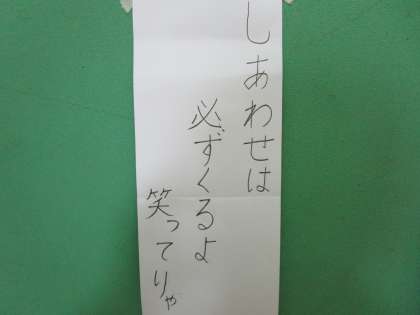 しあわせは
必ずくるよ
笑ってりゃ